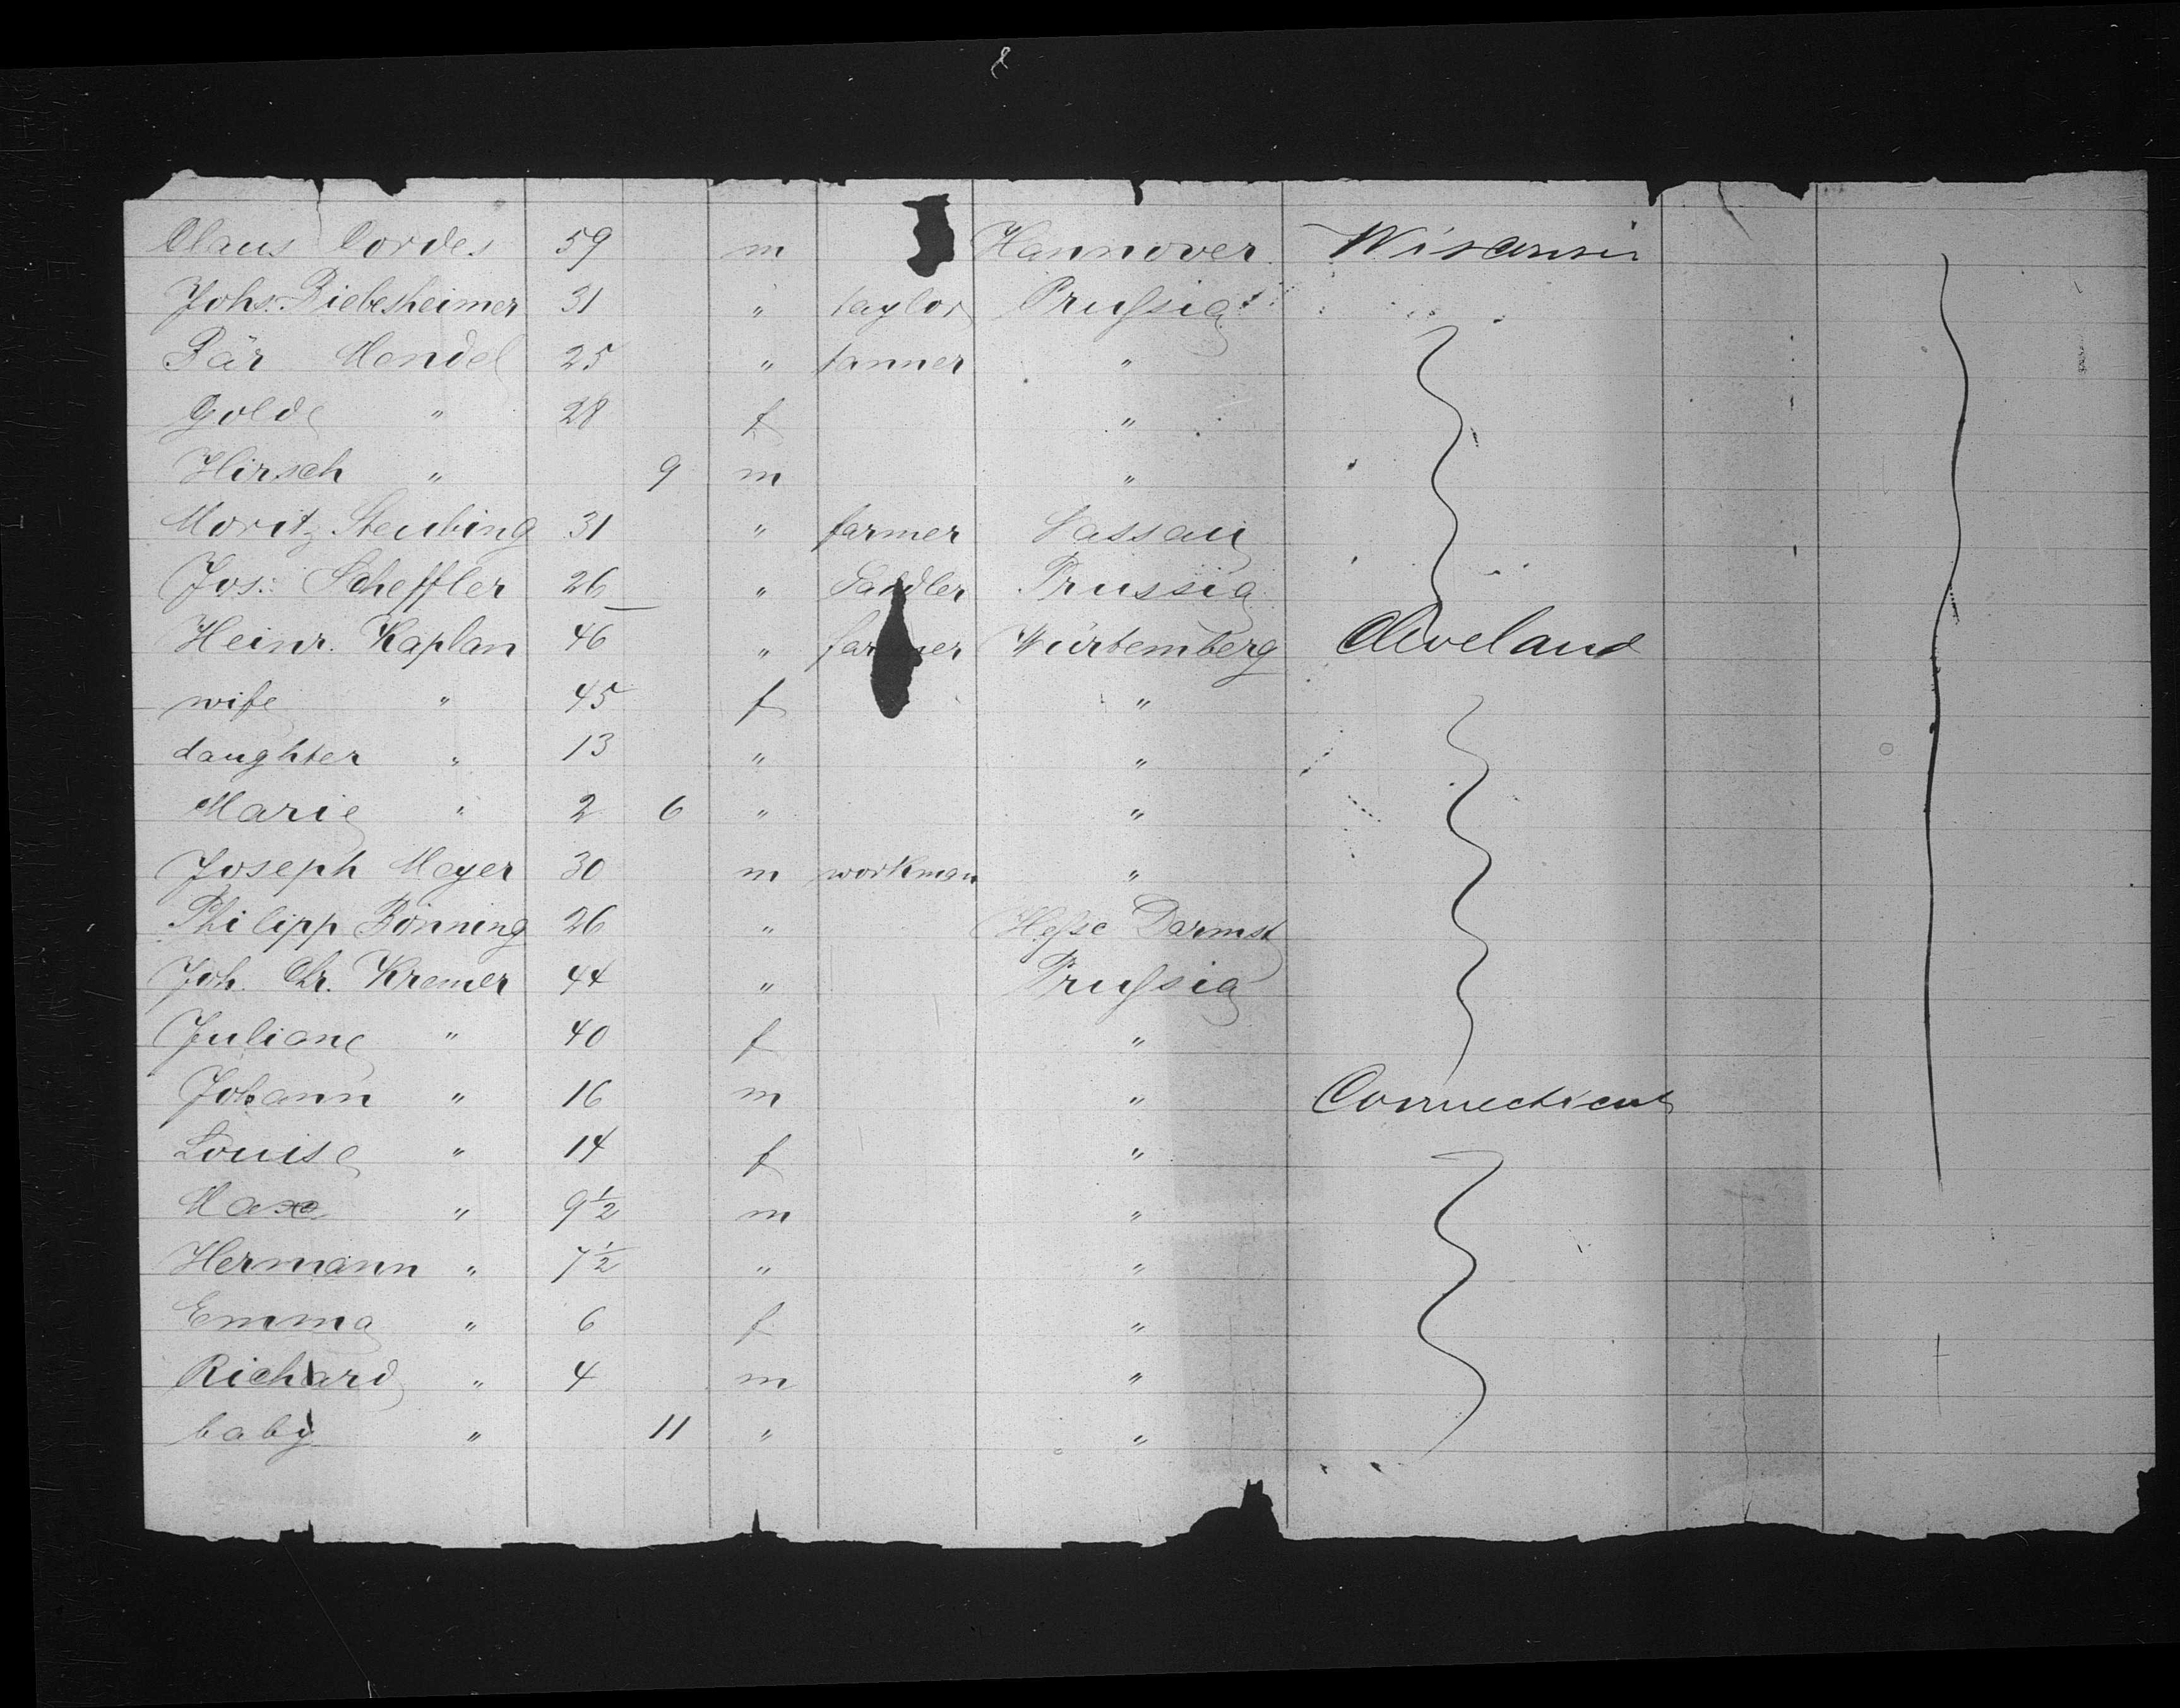 Claus Cordes 59 m Hannover Wisconsin
Johs. Biebesheimer 31 " taylor Prußia
Bär Mendel 25 " tanner "
Golde " 28 f "
Hirsch " 9 m "
Moritz Steubing 31 " farmer Nassau
Jos: Scheffler 26 " Sandler Prussia
Heinr. Kaplan 46 " farmer Würtemberg Cleveland
wife " 45 f "
daughter " 13 " "
Marie " 2 6 " "
Joseph Meyer 30 m workman "
Philipp Bönning 26 " Heße Darmst
Joh. Chr. Kremer 44 " Prußia
Juliane " 40 f "
Johann " 16 m " Connecticut
Louise " 14 f "
Max " 9 1/2 m "
Hermann " 7 1/2 " "
Emma " 6 f "
Richard " 4 m "
baby " 11 " "